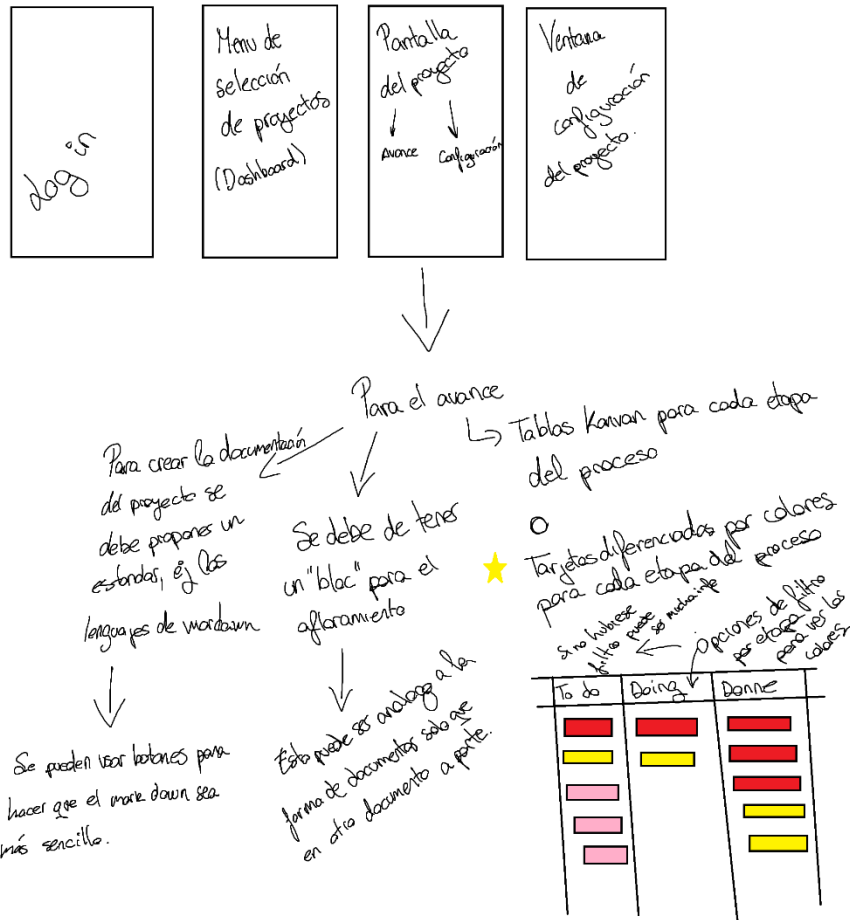 Log in
Menu de
selección
de proyectos
(Dashboard)
Pantalla
del proyecto
Avance
Configuración
Ventana
de
configuración
del proyecto.
Para el avance
Para crear la documentación
del proyecto se
debe proponer un
estandar, ej los
lenguajes de mardawn
Se pueden usar botones para
hacer que el mark down sea
más sencillo.
Se debe de tener
un "bloc" para el
afloramiento
Esto puede ser analogo a la
forma de documentar solo que
en otro documento a parte.
Tablas Kanvan para cada etapa
del proceso
O
Tarjetas diferenciadas por colores
para cada etapa del proceso
si no hubiese
filtro puede
ser mucha info
Opciones de filtro
por etapa
para ver los
colores
To do
Doing
Donne